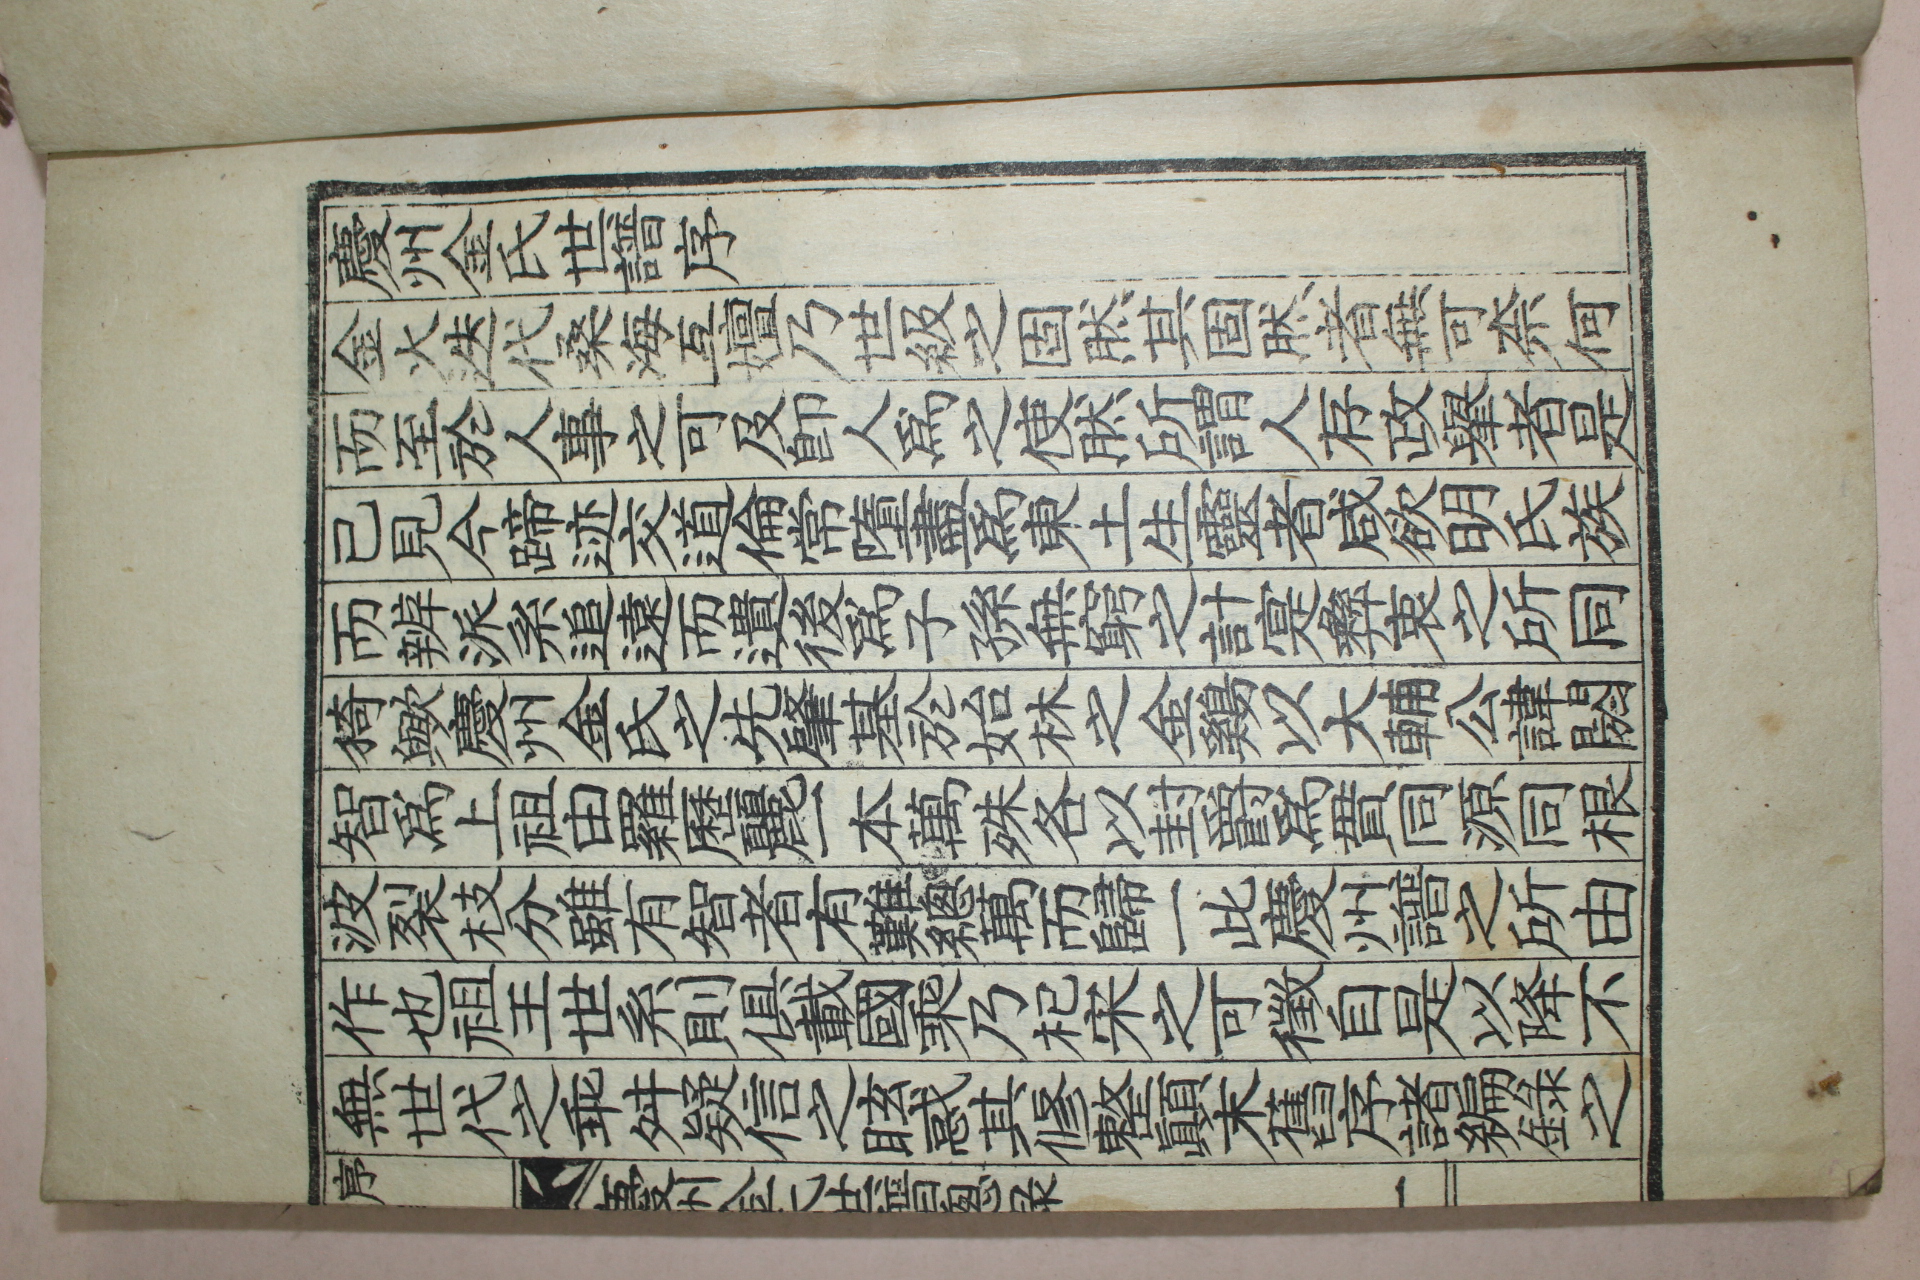 慶州金氏世譜序
金火迭代桑海互嬗乃世級之固然其固然者無可奈何
而至於人事之可及卽人爲之使然所謂人存政擧者是
已見今蹄迹交道倫常墮盡爲東土生靈者咸欲明氏族
而辨派系追遠而遺後爲子孫無窮之計寔彛衷之所同
猗歟慶州金氏之先肇基於始林之金鷄以大輔公諱閼
智爲上祖由羅歷麗一本萬殊各以封爵爲貫同源同根
波裂枝分雖有智者有難總萬而歸一此慶州譜之所由
作也祖王世系則俱載國乘乃杞宋之可徵自是以降不
無世代之乖舛疑信之眩惑其修整顚末舊序諸編錄之
序 慶州金氏世譜總錄 一